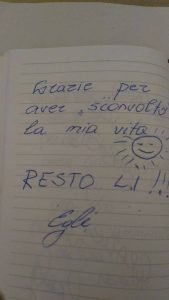 Grazie per
aver sconvolto
la mia vita!!!
RESTO LÌ!!!
Egli